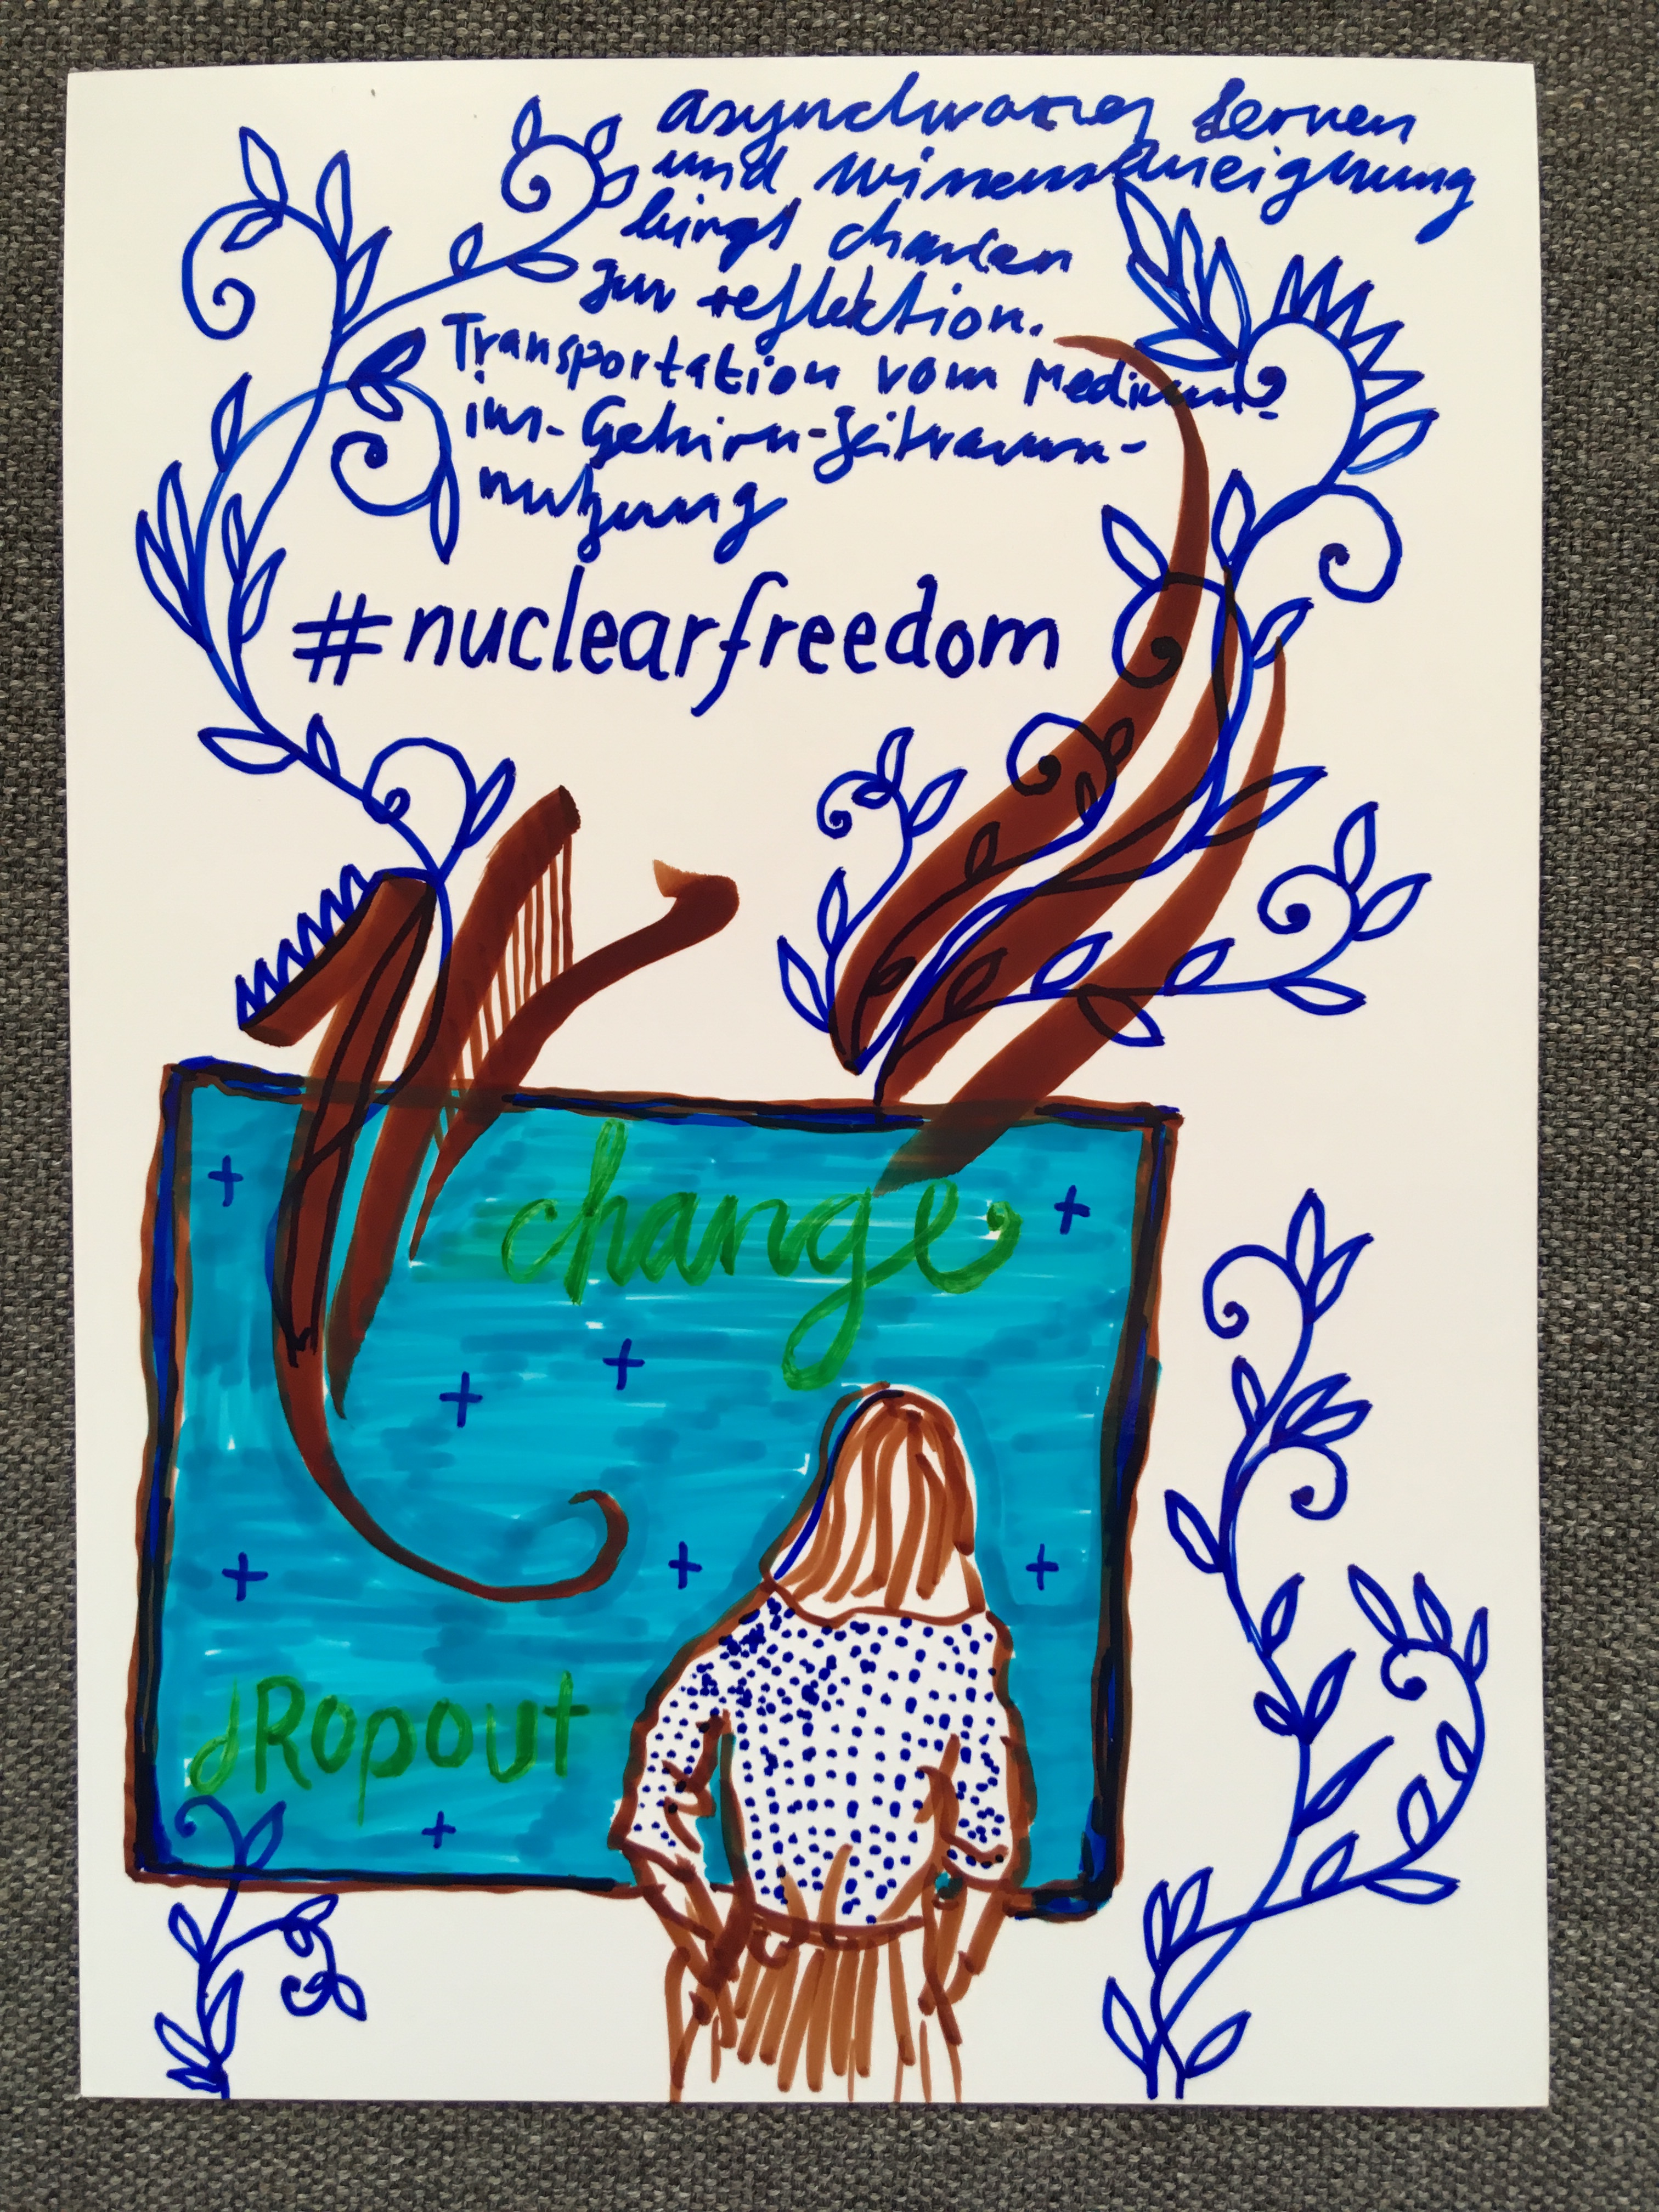 asynchrones lernen
und wissensaneignung
birgt chancen
zur reflektion.
Transportation vom Medium
ins-Gehirn-Zeitraum-
nutzung
#nuclearfreedom
change
dRopout